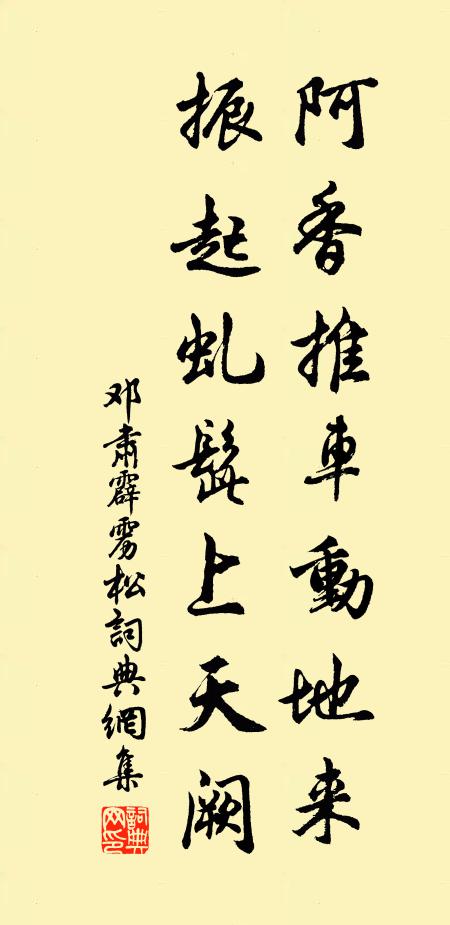 阿香推車動地来
振起虬髯上天阙
邓肃霹雳松詞典網集
詞典网印